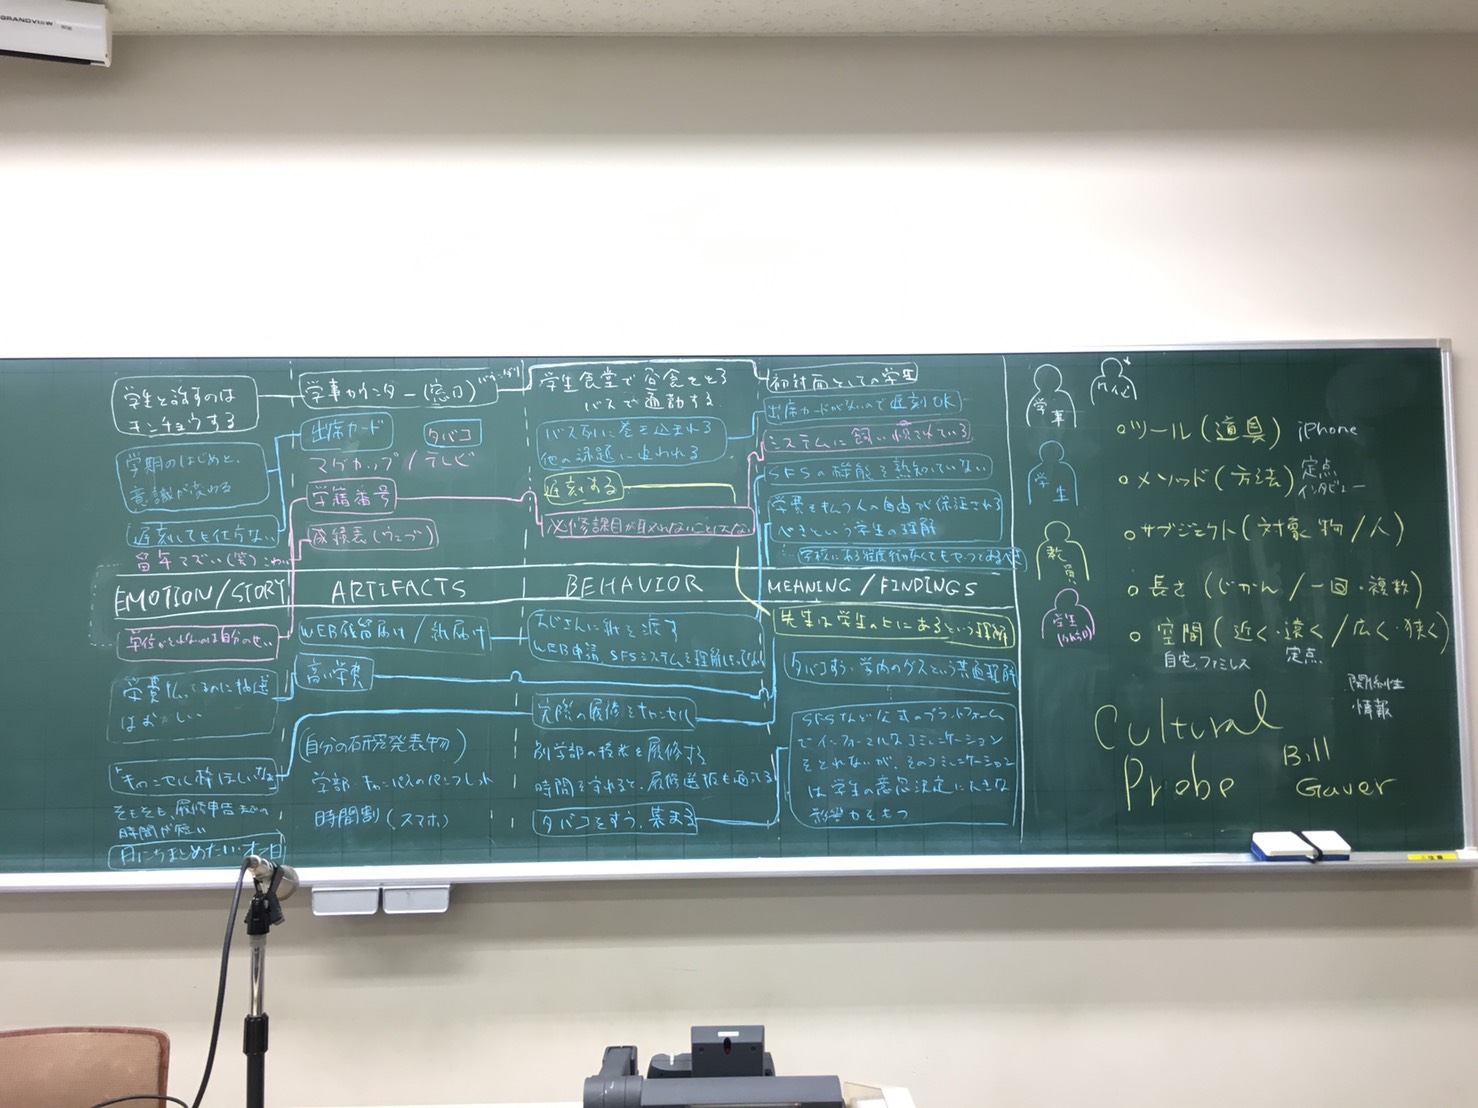 GRANDVIEW
学生と話すのは
キンチョウする
学期のはじめと、
意識が変わる
遅刻しても仕方ない
留年てズい(笑)
EMOTION/STORY
学費払ってるのに
はおかしい
そもそも、履修申告
時間が短い
学事カウンター(窓口)
出席カード
タバコ
マグカップ/テレビ
学籍番号
成績表(ウェブ)
ARTIFACTS
WEB履修届け/紙届け
高い学費
(自分の研究発表物)
学部、キャンパスのパンフレット
時間割(スマホ)
学生食堂で昼食をとる
バスで通勤する
バス列に巻き込まれる
他の課題に追われる
遅刻する
必修課目が取れないことはない
BEHAVIOR
WEB申請、SFSシステムを理解
実際の履修をキャンセル
別学部の授業を履修する
タバコをすう、集まる
初対面としての学生
出席カードがないので遅刻OK
システムに飼い慣らされている
SFSの機能を熟知していない
学費を払う人の自由が保証される
べきという学生の理解
MEANING/FINDINGS
先生は学生の上にあるという理解
タバコすう、学内のグズという共通理解
SFSなど公式のプラットフォーム
でインフォーマルなコミュニケーション
をとれないが、そのコミュニケーション
は学生の意思決定に大きな
影響力をもつ
学事
学生
教員
学生
ツール(道具) iPhone
メソッド(方法) 定点
インタビュー
サブジェクト(対象 物/人)
長さ(じかん/一回・複数)
空間(近く・遠く/広く・狭く)
自宅、ファミレス
定点
関係性
情報
Cultural
Probe
Bill
Gaver